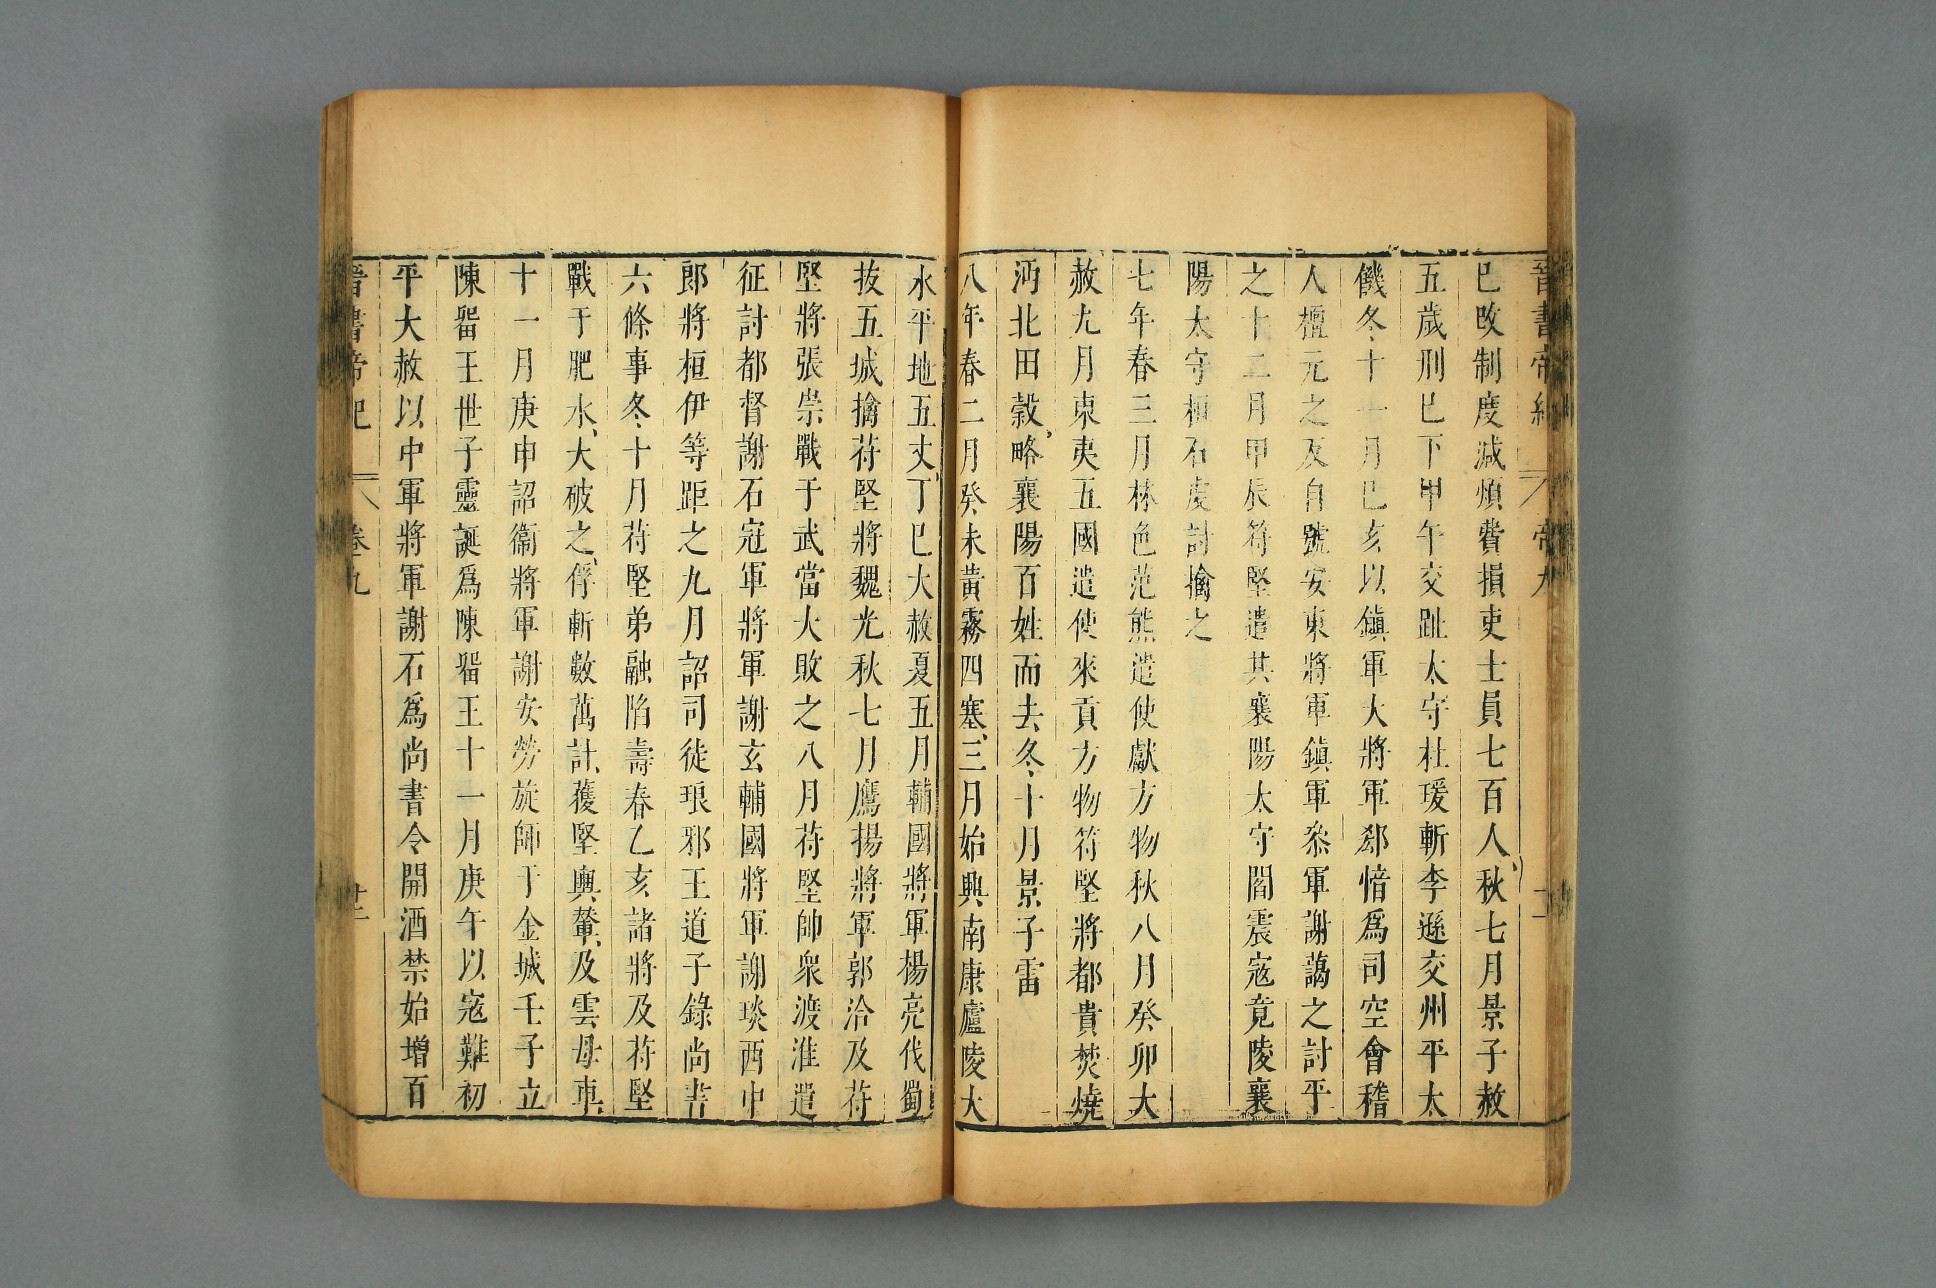 晉書帝紀 帝九
巳改制度減煩費損吏士員七百人秋七月景子赦
五歲刑巳下甲午交趾太守杜瑗斬李遜交州平太
饑冬十一月巳亥以鎮軍大將軍郄愔爲司空會稽
人檀元之反自號安東將軍鎮軍叅軍謝藹之討平
之十二月甲辰符堅遣其襄陽太守閻震寇竟陵襄
陽太守桓石虔討擒之
七年春三月林邑范熊遣使獻方物秋八月癸卯大
赦九月東夷五國遣使來貢方物符堅將都貴焚燒
沔北田穀略襄陽百姓而去冬十月景子雷
八年春二月癸未黃霧四塞三月始興南康廬陵大
水平地五丈丁巳大赦夏五月輔國將軍楊亮伐蜀
拔五城擒苻堅將魏光秋七月鷹揚將軍郭洽及苻
堅將張崇戰于武當大敗之八月苻堅帥衆渡淮遣
征討都督謝石冠軍將軍謝玄輔國將軍謝琰西中
郎將桓伊等距之九月詔司徒琅邪王道子錄尚書
六條事冬十月苻堅弟融陷壽春乙亥諸將及苻堅
戰于肥水大破之俘斬數萬計獲堅輿輦及雲母車
十一月庚申詔衞將軍謝安勞旋師于金城壬子立
陳畱王世子靈誕爲陳畱王十一月庚午以寇難初
平大赦以中軍將軍謝石爲尚書令開酒禁始增百
晉書帝紀 卷九 十二